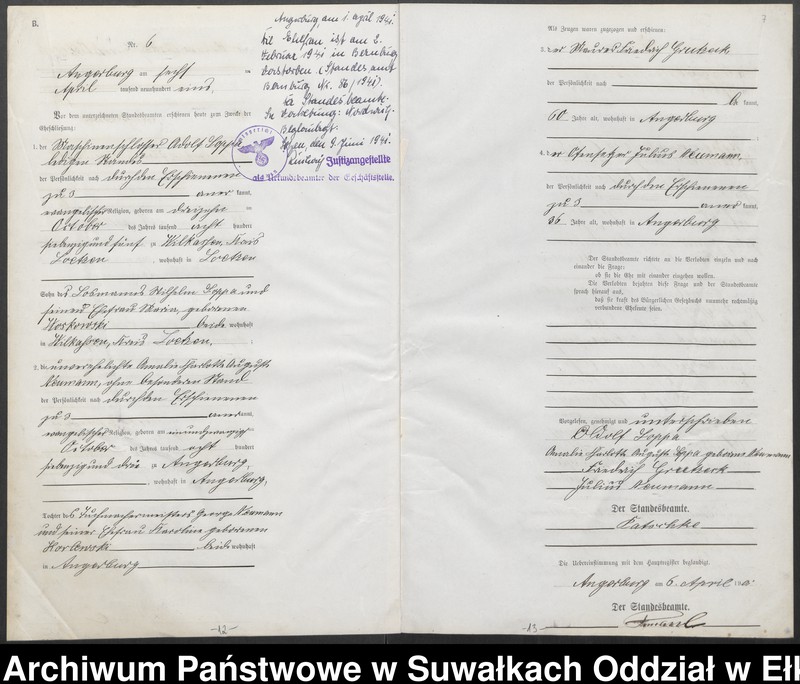 B.
Nr. 6
Angerburg am 1. April 1941.
Die Ehefrau ist am 2.
Februar 1941 in Bernburg
verstorben (Standesamt
Bernburg Nr. 86/1941).
Der Standesbeamte.
In Vertretung:
Beglaubigt.
den 9. Juni 1941.
Justizangestellte
als Urkundsbeamter der Geschäftsstelle.
Angerburg am sechs ten
April tausend neunhundert eins.
Vor dem unterzeichneten Standesbeamten erschienen heute zum Zwecke der
Eheschließung:
1. der Maschinenschlosser Adolf Soppa
ledigen Standes
der Persönlichkeit nach durch den Erschienenen
zu 3 aner kannt,
evangelischer Religion, geboren am dreizehn ten
October des Jahres tausend acht hundert
siebenzig und fünf zu Wilkassen, Kreis
Loetzen, wohnhaft in Loetzen
Sohn des Losmanns Wilhelm Soppa und
seiner Ehefrau Marie, geborenen
Koskowski beide wohnhaft
in Wilkassen, Kreis Loetzen.
2. die unverehelichte Amalie Charlotte Auguste
Neumann, ohne besonderen Stand
der Persönlichkeit nach durch den Erschienenen
zu 3 aner kannt,
evangelischer Religion, geboren am neunundzwanzigsten
October des Jahres tausend acht hundert
siebenzig und drei zu Angerburg,
wohnhaft in Angerburg,
Tochter des Tuchmachermeisters George Neumann
und seiner Ehefrau Karoline geborenen
beide wohnhaft
in Angerburg
-12-
7
Als Zeugen waren zugezogen und erschienen:
3. der Maurer Friedrich
der Persönlichkeit nach
be kannt,
60 Jahre alt, wohnhaft in Angerburg
4. der Ofensetzer Julius Neumann,
der Persönlichkeit nach durch den Erschienenen
zu 3 aner kannt,
36 Jahre alt, wohnhaft in Angerburg
Der Standesbeamte richtete an die Verlobten einzeln und nach
einander die Frage:
ob sie die Ehe mit einander eingehen wollen.
Die Verlobten bejahten diese Frage und der Standesbeamte
sprach hierauf aus,
daß sie kraft des Bürgerlichen Gesetzbuchs nunmehr rechtmäßig
verbundene Eheleute seien.
Vorgelesen, genehmigt und unterschrieben
Adolf Soppa
Amalie Charlotte Auguste Soppa geborene Neumann
Friedrich
Julius Neumann
Der Standesbeamte.
Die Uebereinstimmung mit dem Hauptregister beglaubigt.
Angerburg am 6. April 1901
Der Standesbeamte.
-13-
Archiwum Państwowe w Suwałkach Oddział w Ełk